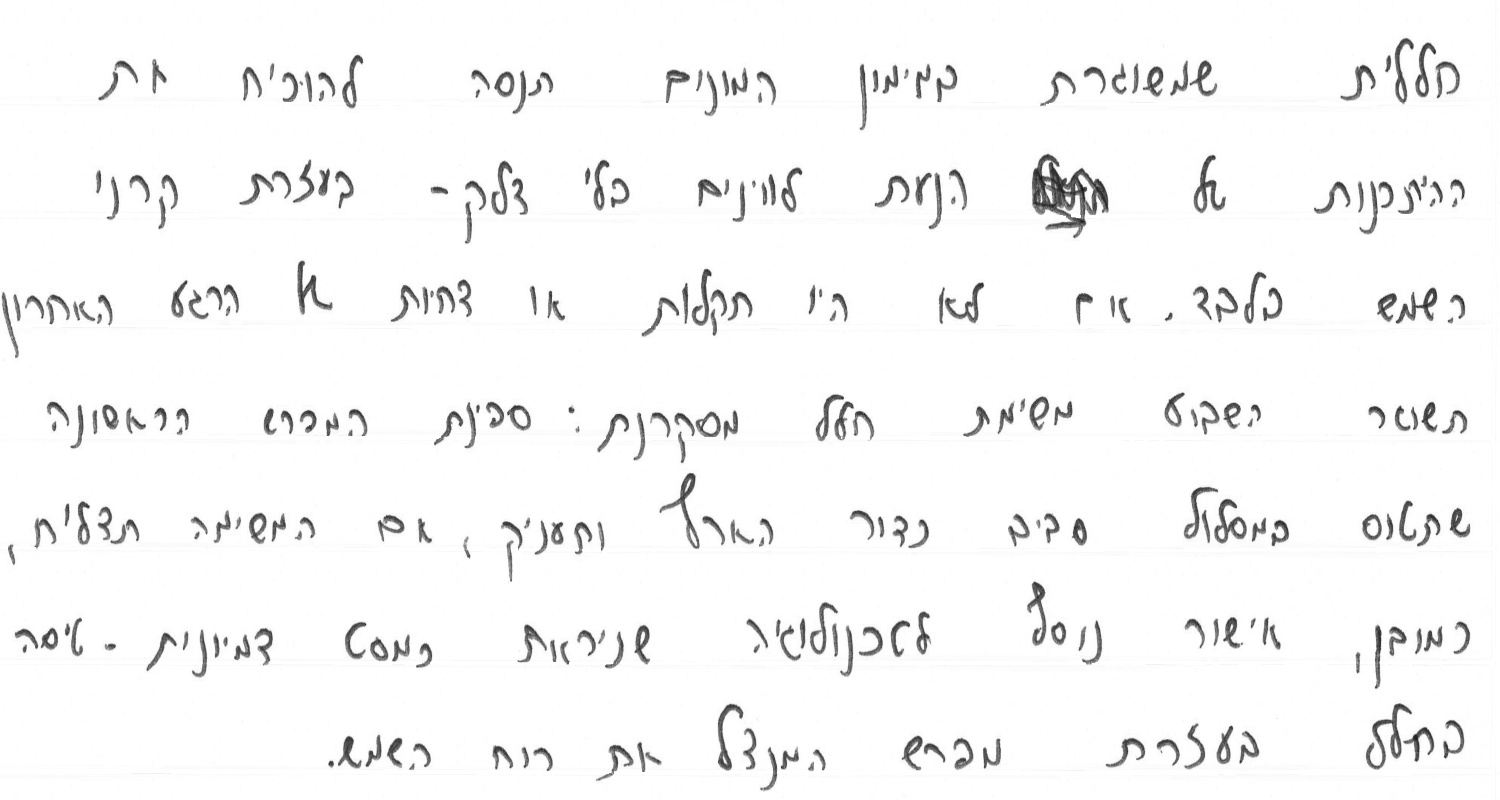 חללית שמשוגרת במימון המונים תנסה להוכיח את
ההיתכנות של הנעת לווינים בלי דלק - בעזרת קרני
השמש בלבד. אם לא היו תקלות או דחיות של הרגע האחרון
תשוגר השבוע משימת חלל מסקרנת: ספינת המפרש הראשונה
שתטוס במסלול סביב כדור הארץ ותעניק, אם המשימה תצליח,
כמובן, אישור נוסף לטכנולוגיה שניראת כמסט דמיונית - טיסה
בחלל בעזרת מפרש המנצל את רוח השמש.